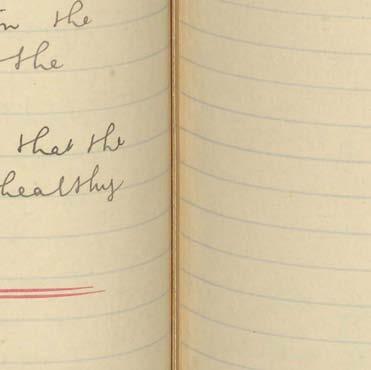 in the
the
that the
healthy